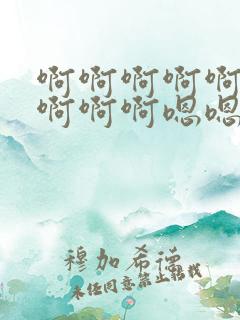 啊啊啊啊啊
啊啊啊嗯嗯
穆加希德
未经同意禁止转载